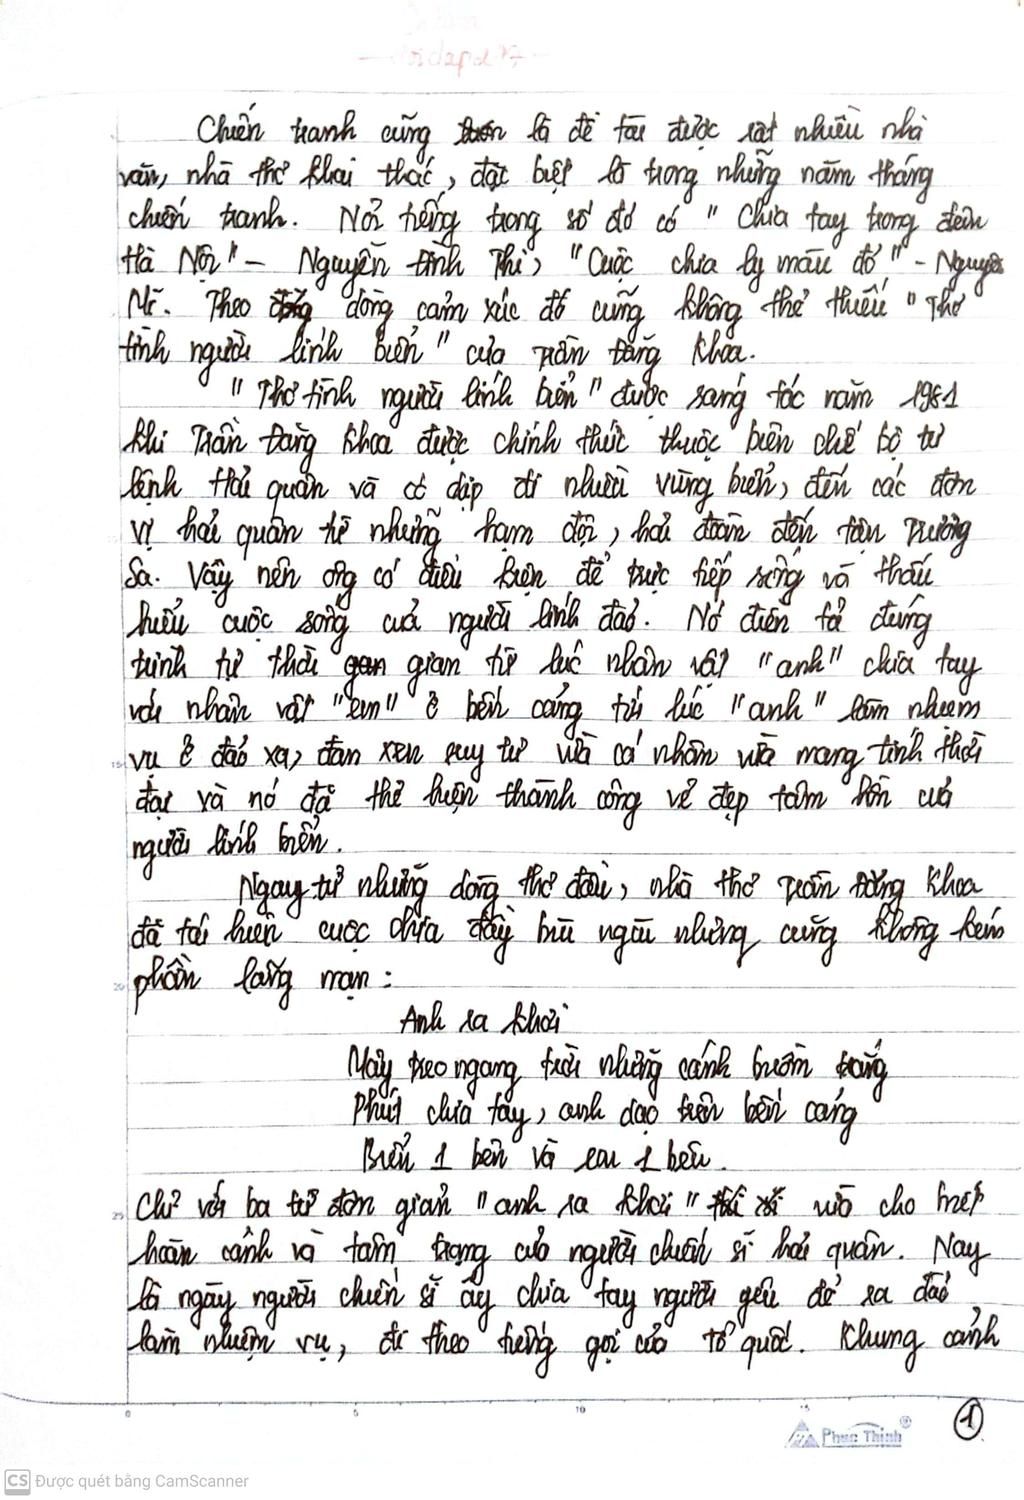 Chiến tranh cũng là đề tài được rất nhiều nhà
văn, nhà thơ khai thác, đặc biệt là trong những năm tháng
chiến tranh. Nổi tiếng trong số đó có "Chia tay trong đêm
Hà Nội" - Nguyễn Đình Thi, "Cuộc chia ly màu đỏ" - Nguyễn
Mĩ. Theo dòng cảm xúc đó cũng không thể thiếu "Thơ
tình người lính biển" của Trần Đăng Khoa.
"Thơ tình người lính biển" được sáng tác năm 1981
khi Trần Đăng Khoa được chính thức thuộc biên chế bộ tư
lệnh Hải quân và có dịp đi nhiều vùng biển, đến các đơn
vị hải quân từ những hạm đội, hải đoàn đến tận Trường
Sa. Vậy nên ông có điều kiện để trực tiếp sống và thấu
hiểu cuộc sống của người lính đảo. Nó diễn tả đúng
trình tự thời gian từ lúc nhân vật "anh" chia tay
với nhân vật "em" ở bến cảng tới lúc "anh" làm nhiệm
vụ ở đảo xa, đan xen suy tư vừa cá nhân vừa mang tính thời
đại và nó đã thể hiện thành công vẻ đẹp tâm hồn của
người lính biển.
Ngay từ những dòng thơ đầu, nhà thơ Trần Đăng Khoa
đã tái hiện cuộc chia đầy bùi ngùi nhưng cũng không kém
phần lãng mạn:
Anh ra khơi
Mây treo ngang trời những cánh buồm trắng
Phút chia tay, anh dạo trên bến cảng
Biển 1 bên và em 1 bên.
Chỉ với ba từ đơn giản "anh ra khơi" cho biết
hoàn cảnh và tâm trạng của người chiến sĩ hải quân. Nay
là ngày người chiến sĩ ấy chia tay người yêu để ra đảo
làm nhiệm vụ, đi theo tiếng gọi của tổ quốc. Khung cảnh
15
20
25
0 5 10 15
1
Phuc Thinh
CS Được quét bằng CamScanner